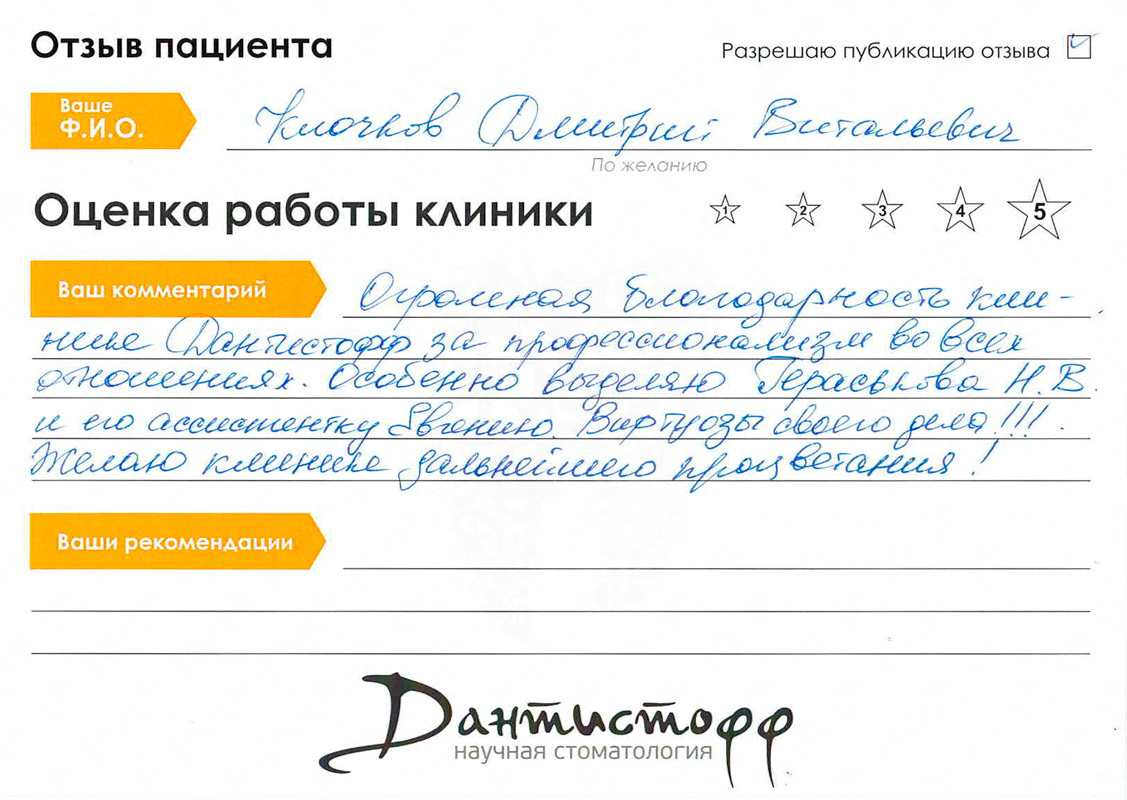 Отзыв пациента
Разрешаю публикацию отзыва
Ваше
Ф.И.О.
Клочков Дмитрий Витальевич
По желанию
Оценка работы клиники
1 2 3 4 5
Ваш комментарий
Огромная благодарность кли-
нике Дантистофф за профессионализм во всех
отношениях. Особенно выделяю Гераськова Н.В.
и его ассистентку Евгению. Виртуозы своего дела!!!
Желаю клинике дальнейшего процветания!
Ваши рекомендации
Дантистофф
научная стоматология